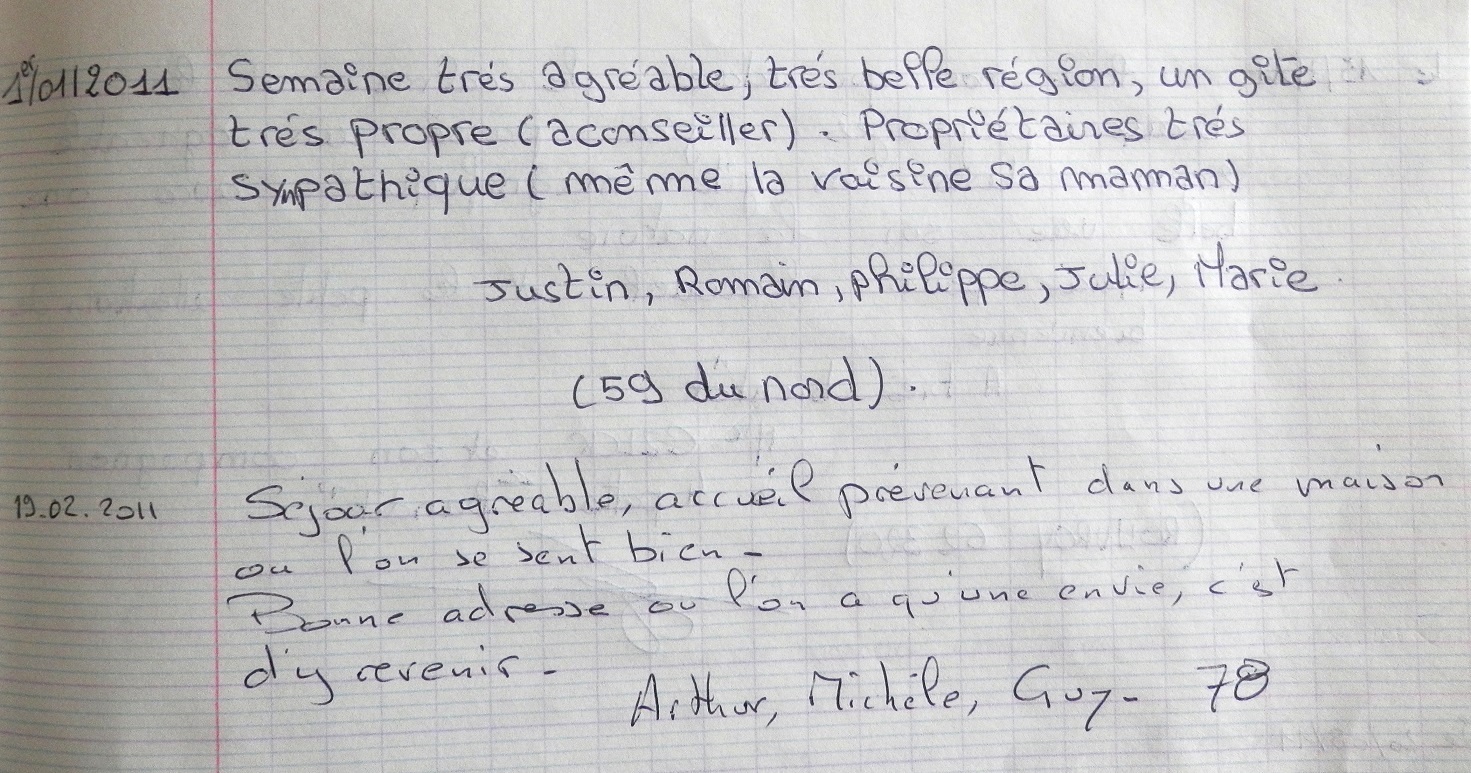 1er/01/2011 Semaine trés agréable, trés belle région, un gîte
trés propre (aconseiller). Propriétaires trés
sympathique (même la voisine sa maman)
Justin, Romain, Philippe, Julie, Marie.
(59 du nord).
19.02.2011 Séjour agréable, accueil prévenant dans une maison
ou l'on se sent bien -
Bonne adresse ou l'on a qu'une envie, c'est
d'y revenir -
Arthur, Michèle, Guy - 78